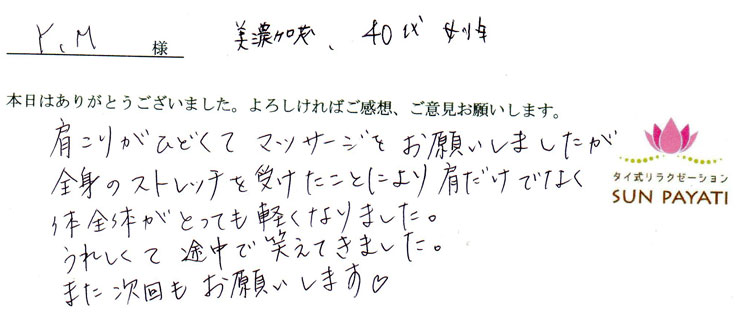 Y.M 様 美濃加茂、40代 女性
本日はありがとうございました。よろしければご感想、ご意見お願いします。
肩こりがひどくて マッサージを お願いしましたが
全身のストレッチを受けたことにより肩だけでなく
体全体がとっても軽くなりました。
うれしくて途中で笑えてきました。
また次回もお願いします♡
タイ式リラクゼーション
SUN PAYATI